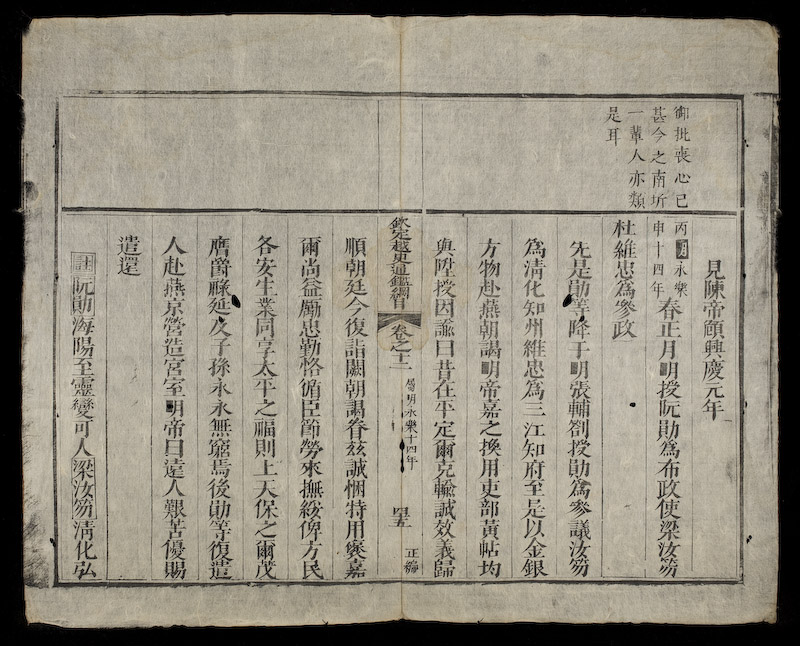 御批喪心已
甚今之南圻
一輩人亦類
是耳
見陳帝頠興慶元年
丙申
永樂十四年
春正月明授阮勛為布政使梁汝笏
杜維忠為參政
先是勛等降于明張輔劄授勛為參議汝笏
為清化知州維忠為三江知府至是以金銀
方物赴燕朝謁明帝嘉之換用吏部黃帖均
與陞授因諭曰昔在平定爾克輸誠效義歸
欽定越史通鑑綱目
卷之十二
屬明永樂十四年
四五
正編
順朝廷今復詣闕朝謁眷兹誠悃特用褒嘉
爾尚益勵忠勤恪循臣節勞來撫綏俾方民
各安生業同享太平之福則上天保之爾茂
膺爵祿延及子孫永永無窮焉後勛等復遣
人赴燕京營造宮室明帝曰遠人艱苦優賜
遣還
註阮勛海陽至靈變可人梁汝笏清化弘